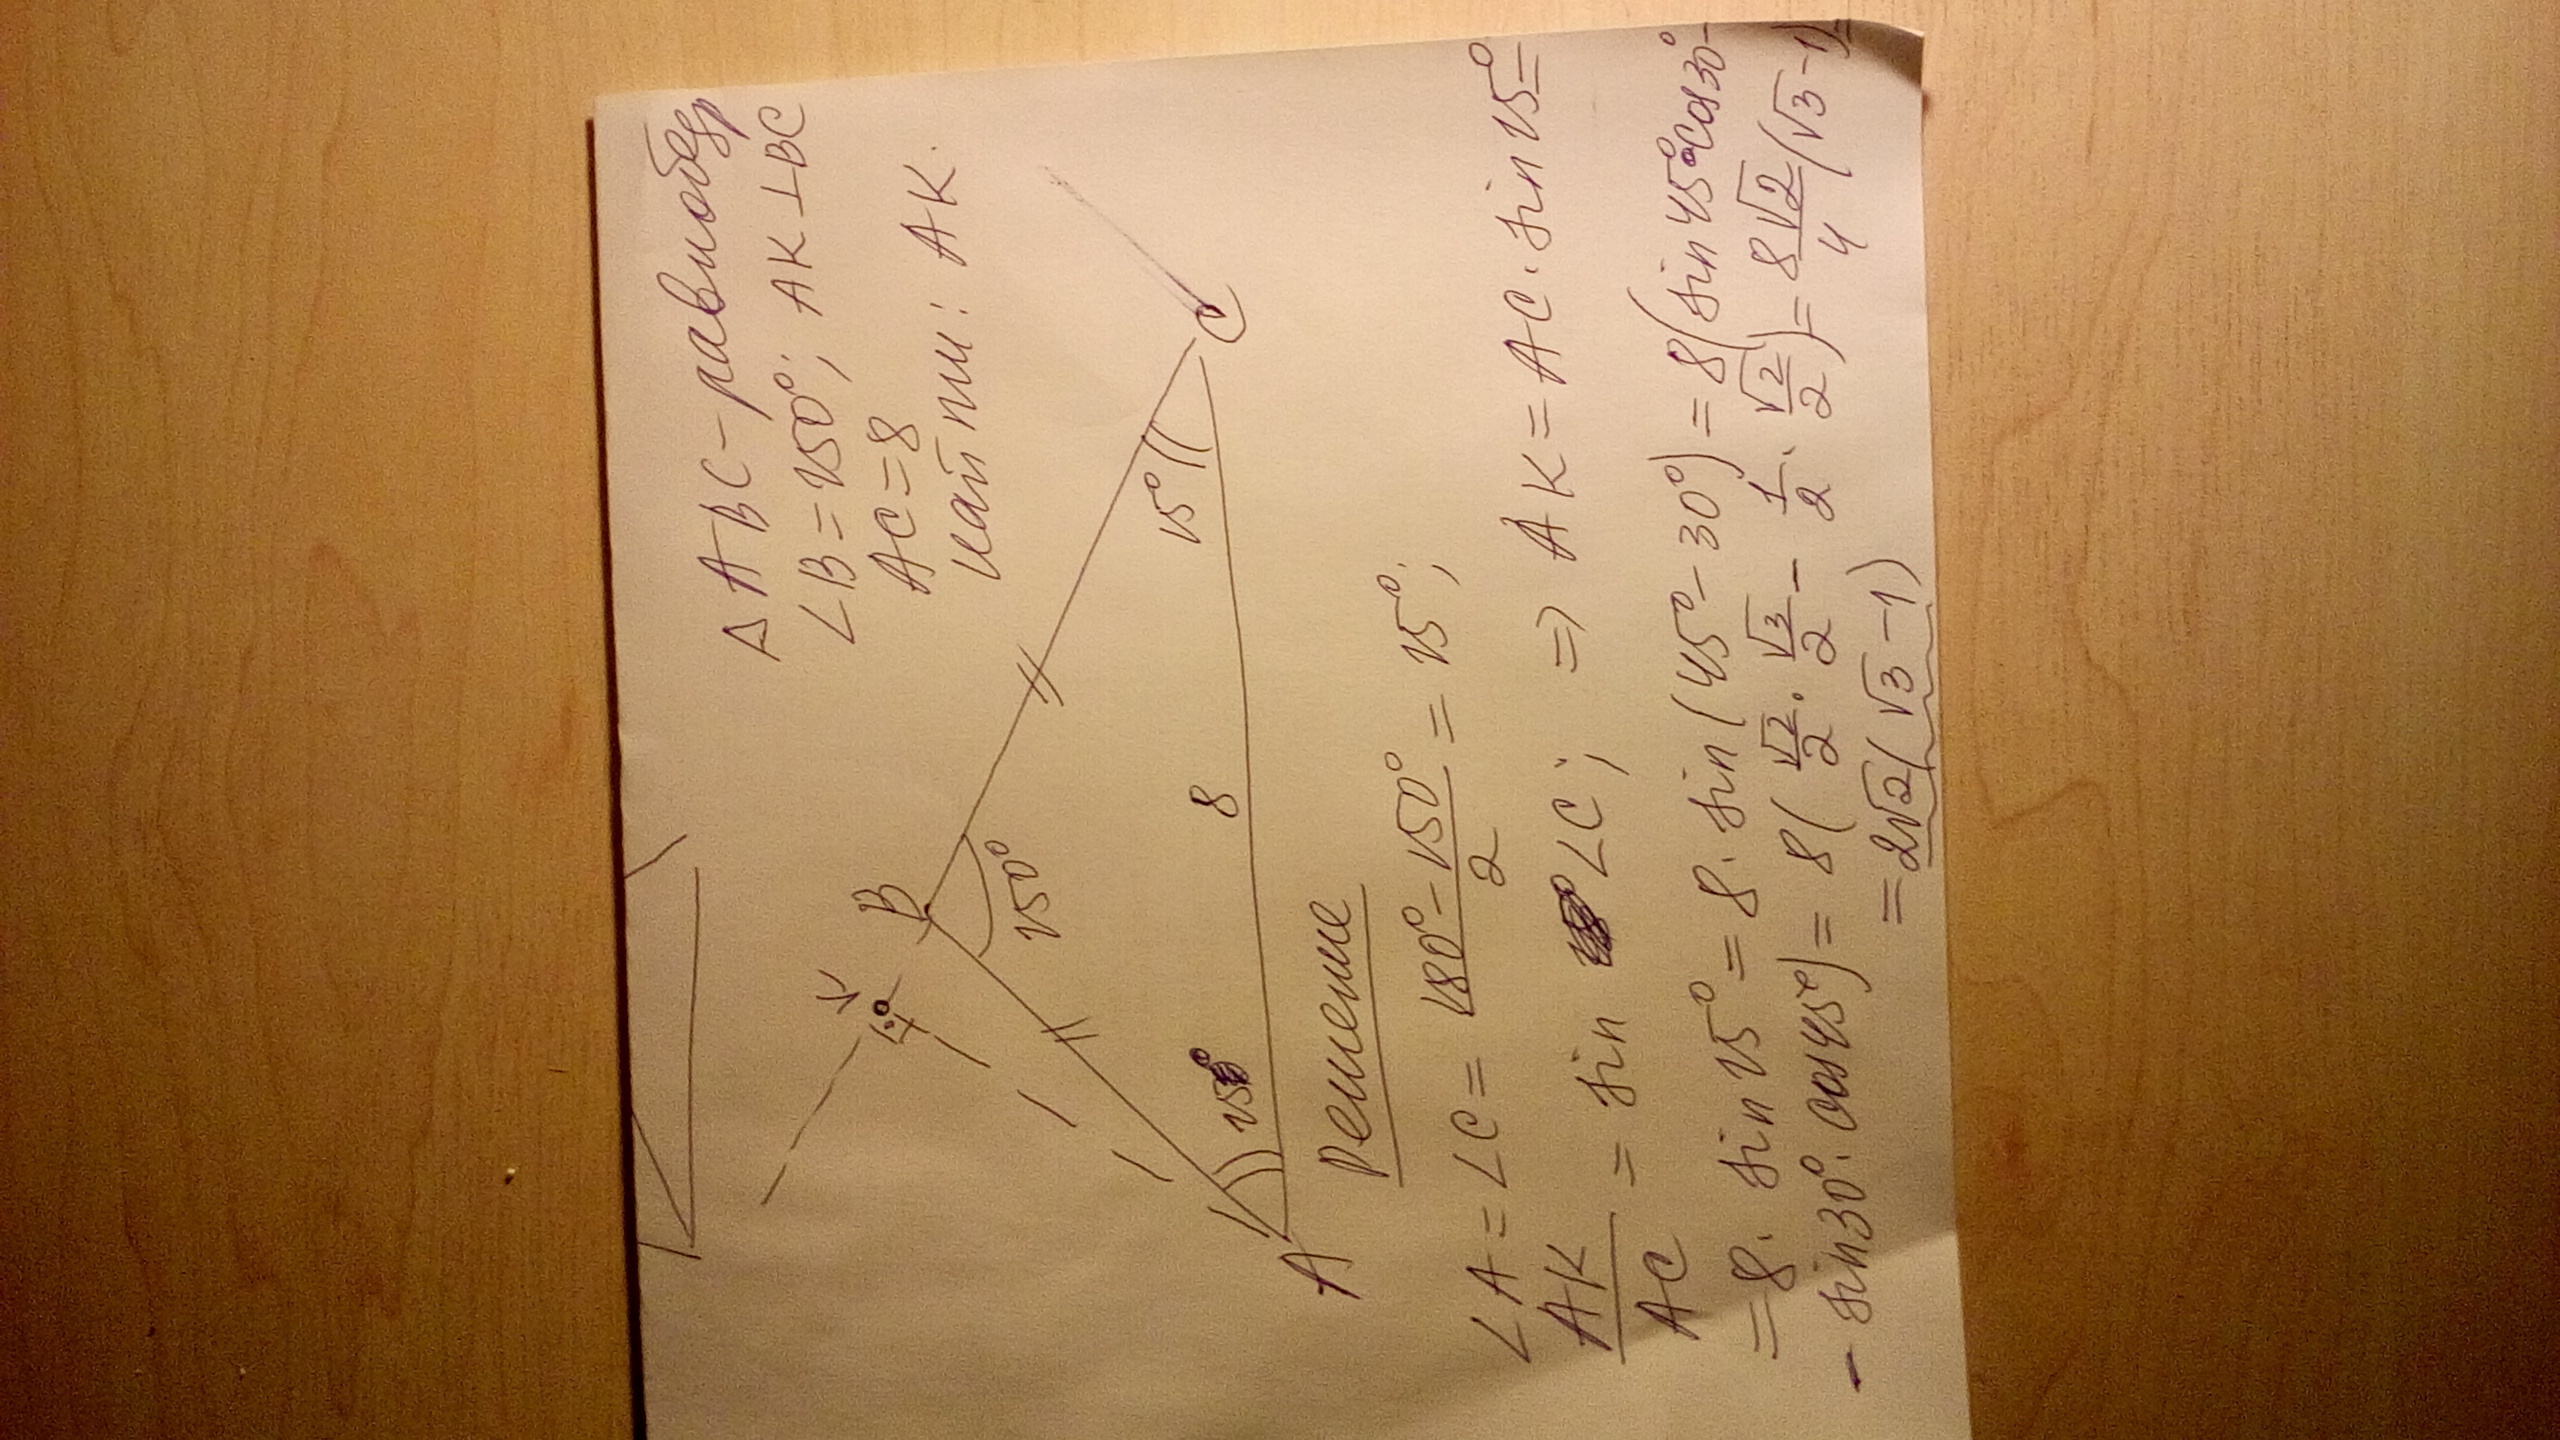 Δ ABC - равнобедр
∠B = 150°; AK ⊥ BC
AC = 8
Найти: AK.
K
B
150°
15°
15°
8
A
C
Решение
∠A = ∠C = \frac{180° - 150°}{2} = 15°;
\frac{AK}{AC} = sin ∠C; ⇒ AK = AC · sin 15° =
= 8 · sin 15° = 8 · sin (45° - 30°) = 8 (sin 45° cos 30° -
- sin 30° · cos 45°) = 8 (\frac{√2}{2} · \frac{√3}{2} - \frac{1}{2} · \frac{√2}{2}) = \frac{8√2}{4} (√3 - 1) =
= 2√2 (√3 - 1)